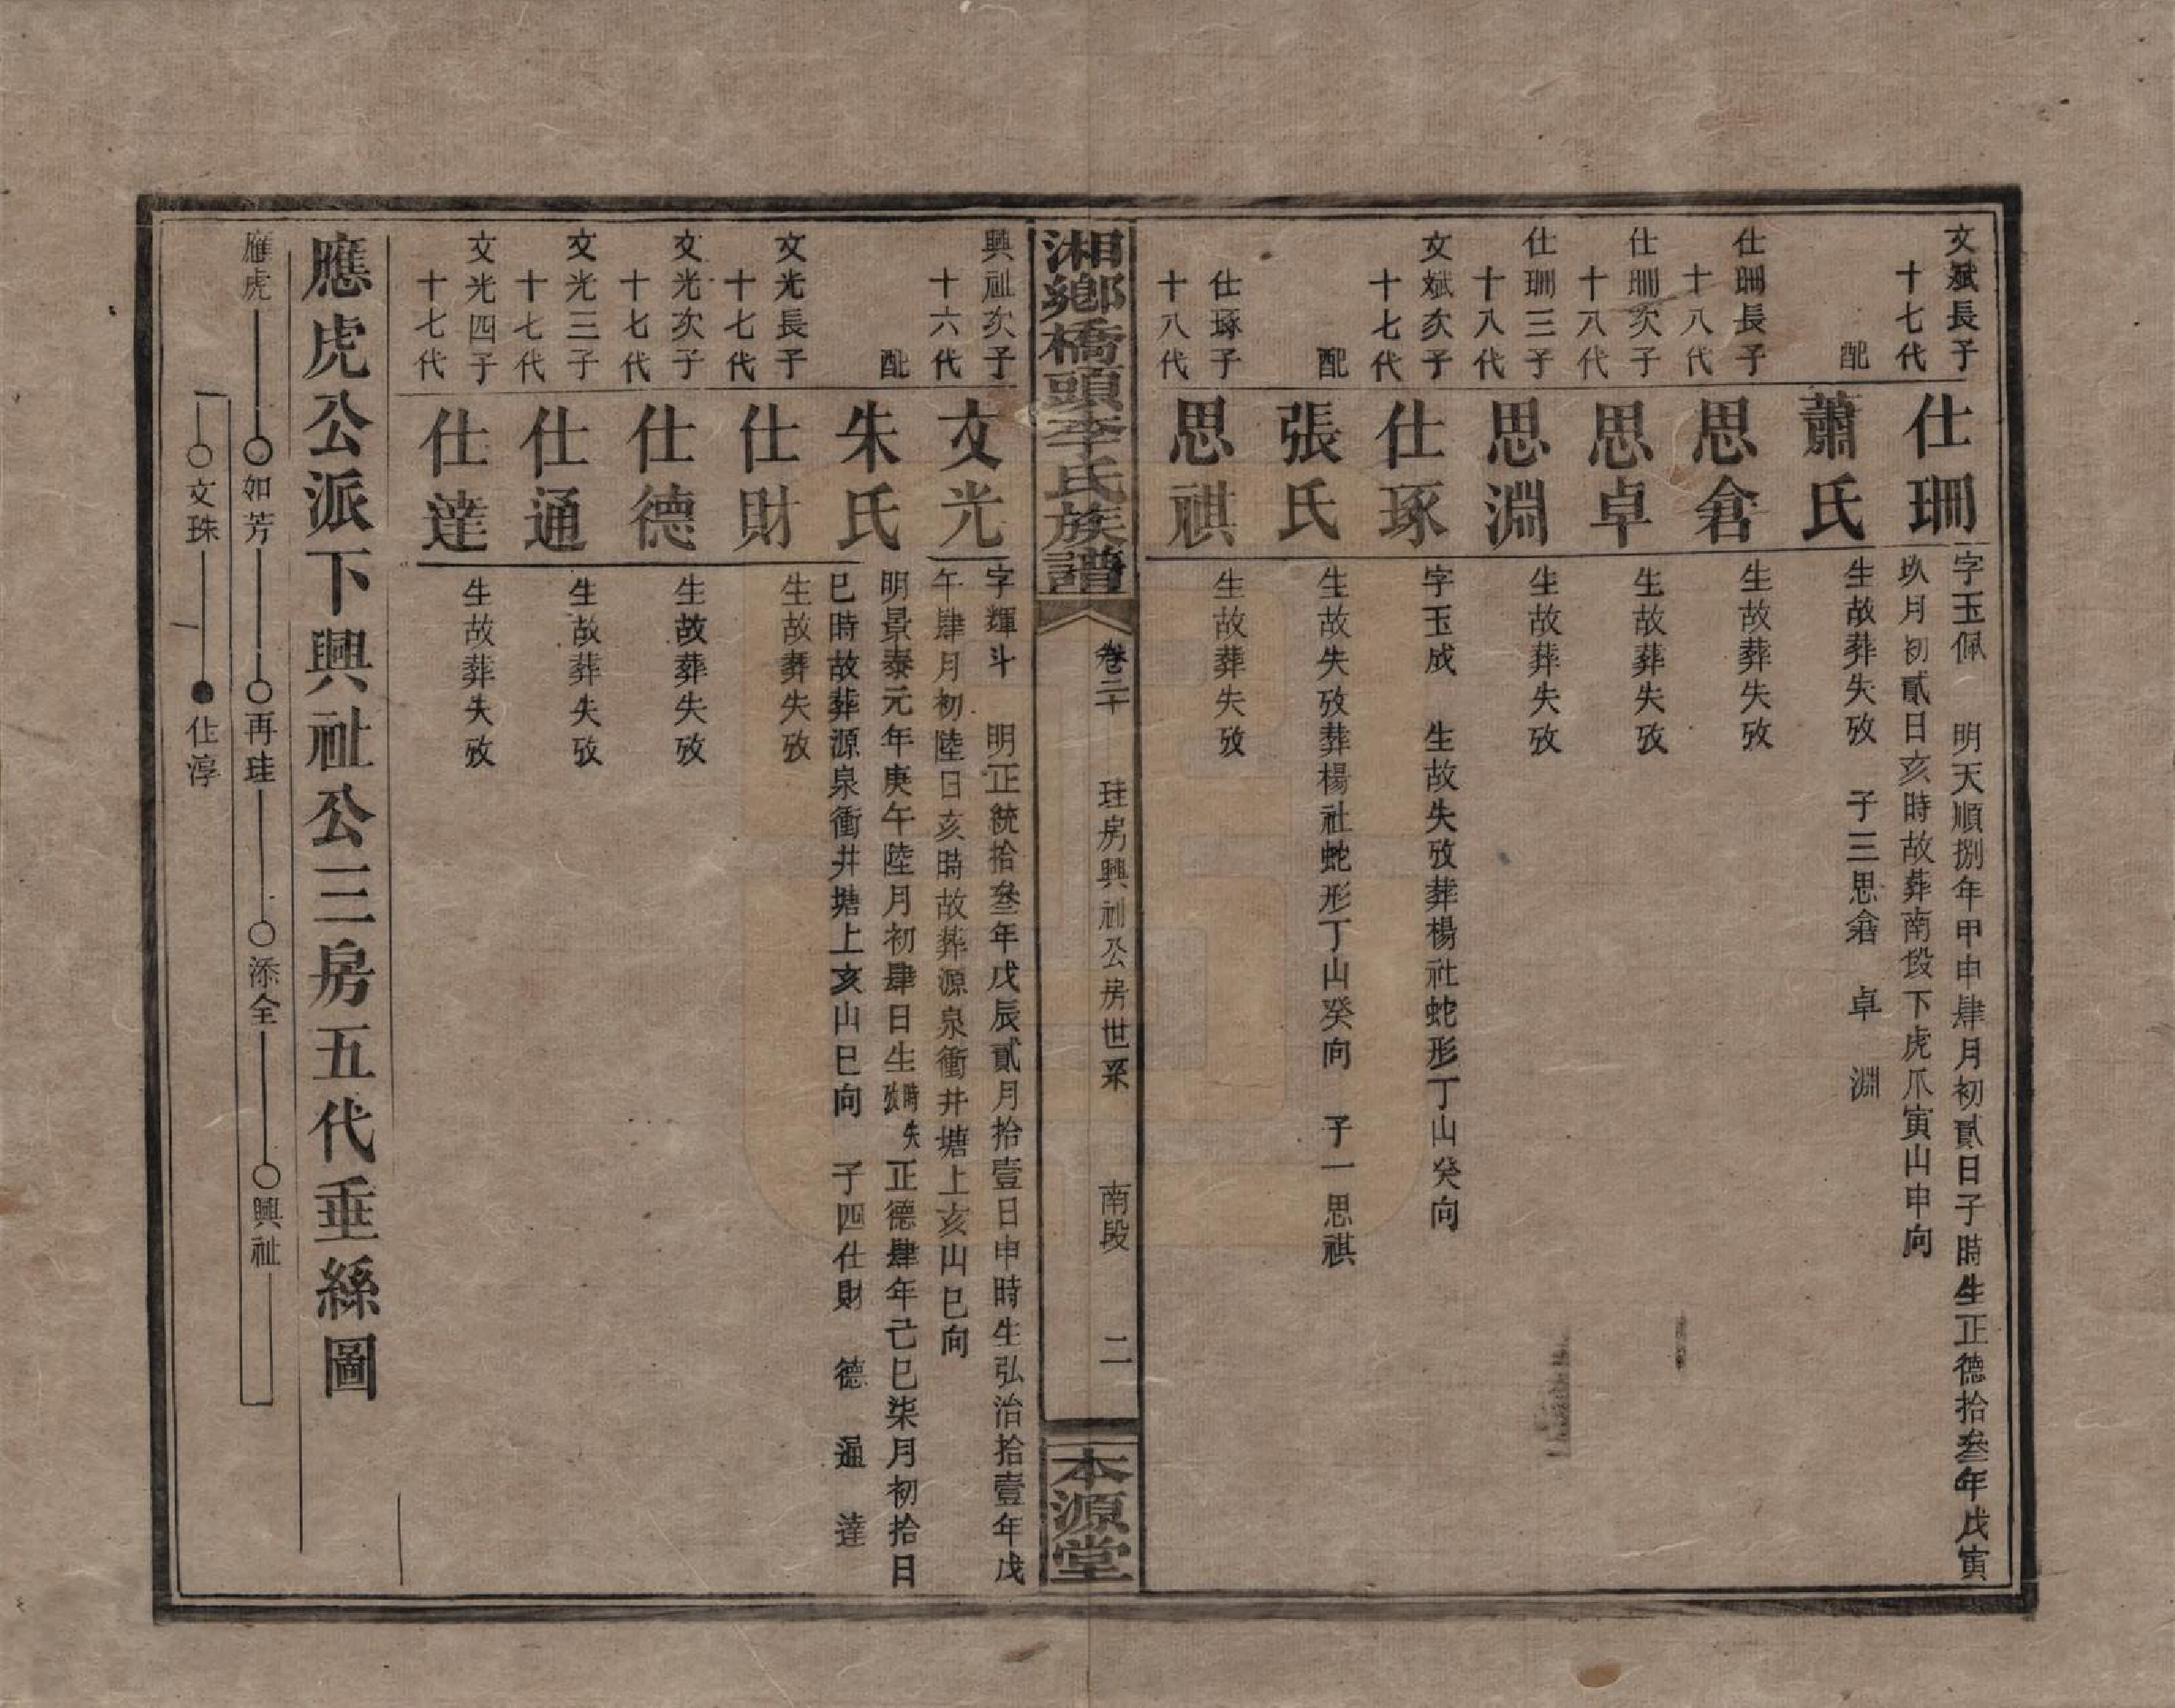 文斌長子
十七代
仕珊
字玉佩 明天順捌年甲申肆月初貳日子時生正德拾叁年戊寅
玖月初貳日亥時故葬南段下虎爪寅山申向
配
蕭氏
生故葬失攷 子三思睿 卓 淵
仕珊長子
十八代
思睿
生故葬失攷
仕珊次子
十八代
思卓
生故葬失攷
仕珊三子
十八代
思淵
生故葬失攷
文斌次子
十七代
仕琢
字玉成 生故失攷葬楊社蛇形丁山癸向
配
張氏
生故失攷葬楊社蛇形丁山癸向 子一思祺
仕琢子
十八代
思祺
生故葬失攷
湘鄉橋頭李氏族譜
卷二十 珪房興祉公房世系 南段 二
本源堂
興祉次子
十六代
文光
字輝斗 明正統拾叁年戊辰貳月拾壹日申時生弘治拾壹年戊
午肆月初陸日亥時故葬源泉衝井塘上亥山巳向
配
朱氏
明景泰元年庚午陸月初肆日生時失攷正德肆年己巳柒月初拾日
巳時故葬源泉衝井塘上亥山巳向 子四仕財 德 通 達
文光長子
十七代
仕財
生故葬失攷
文光次子
十七代
仕德
生故葬失攷
文光三子
十七代
仕通
生故葬失攷
文光四子
十七代
仕達
生故葬失攷
應虎公派下興祉公三房五代垂絲圖
應虎 如芳 再珪 添全 興祉
文珠 仕淳